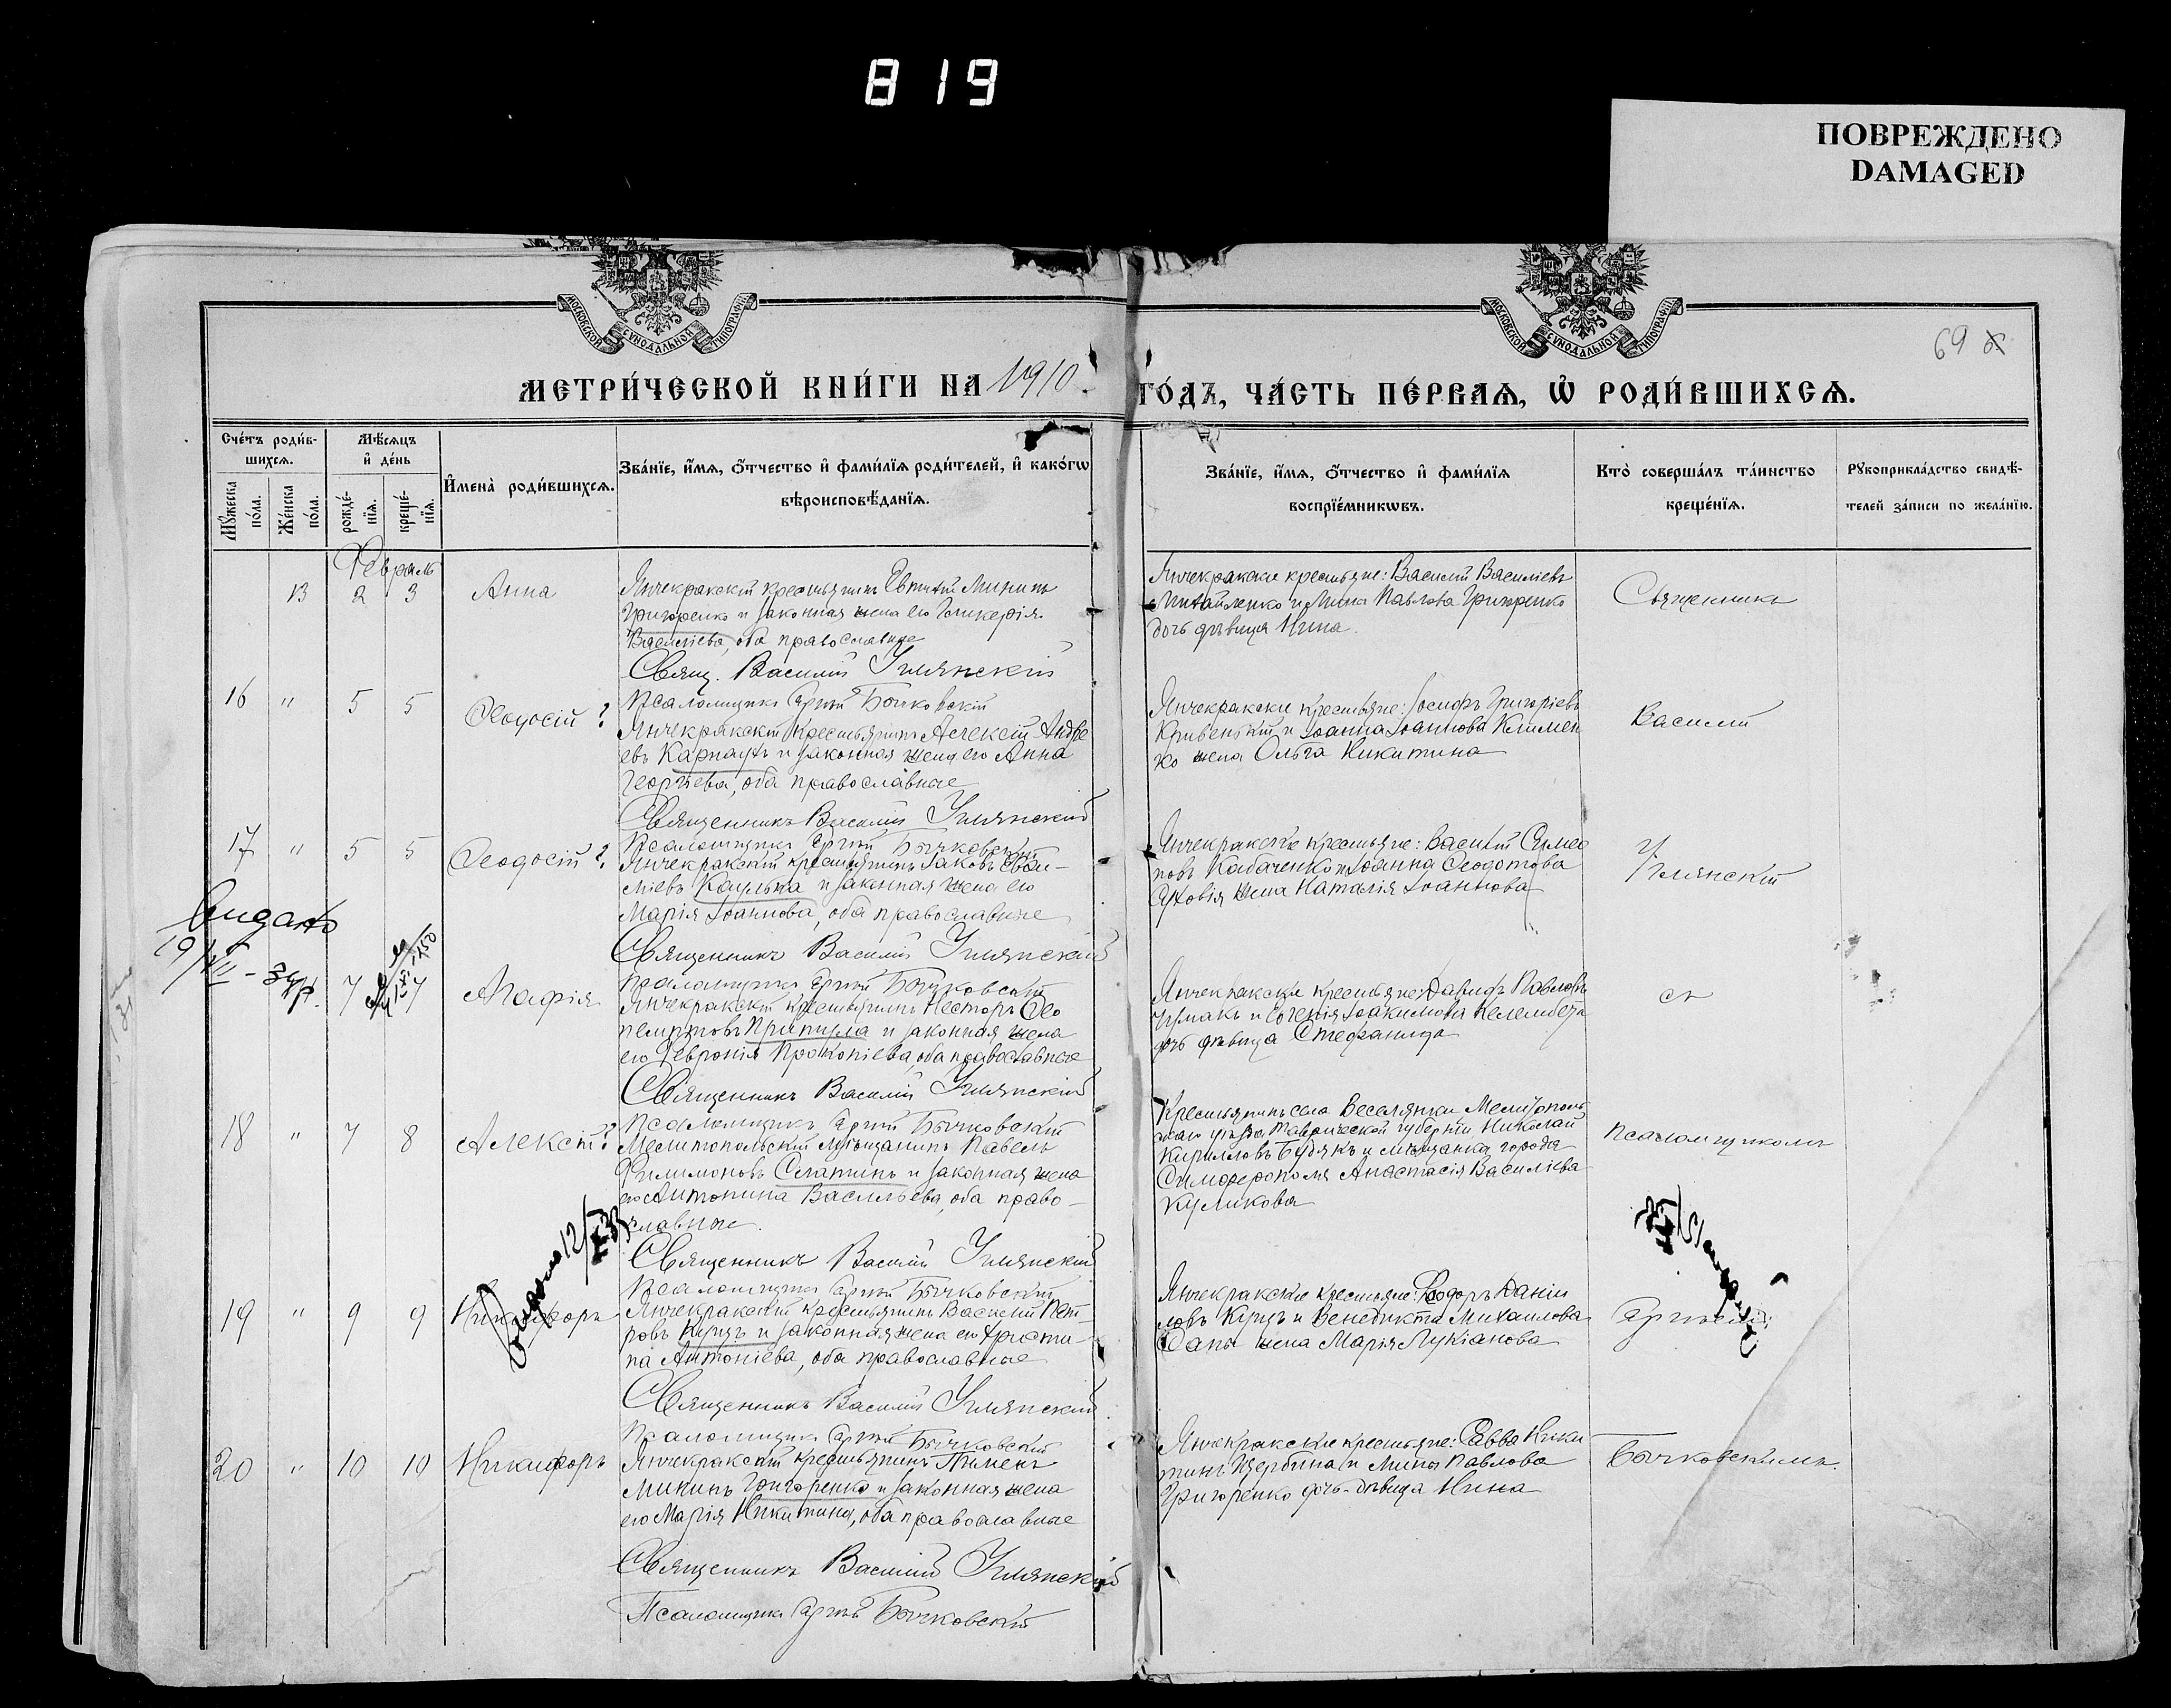 819
ПОВРЕЖДЕНО
DAMAGED
МОСКОВСКОЙ СѴНОДАЛЬНОЙ ТИПОГРАФІИ
МОСКОВСКОЙ СѴНОДАЛЬНОЙ ТИПОГРАФІИ
69
МЕТРИ́ЧЕСКОЙ КНИ́ГИ НА 1910
ГО́ДЪ, ЧА́СТЬ ПЕ́РВАѦ, Ѡ҆ РОДИ́ВШИХСѦ.
Сче́тъ роди́в-
шихсѧ.
Мꙋ́жеска
по́ла.
Же́нска
по́ла.
Мѣ́сѧцъ
и҆ де́нь
рожде́-
нїѧ.
креще́-
нїѧ.
И҆мена̀ роди́вшихсѧ.
Зва́нїе, и҆́мѧ, ѻ҆́тчество и҆ фами́лїѧ роди́телей, и҆ како́гѡ
вѣроисповѣ́данїѧ.
Зва́нїе, и҆́мѧ, ѻ҆́тчество и҆ фами́лїѧ
воспрїе́мникѡвъ.
Кто̀ соверша́лъ та́инство
креще́нїѧ.
Рꙋкоприкла́дство свидѣ́-
телей за́писи по жела́нїю.
Февраль
13 2 3 Анна
Янчекракскій крестьянинъ Евтихій Мининъ
Григоренко и законная жена его Гликерія
Васильева, оба православные
Свящ. Василій Уклянскій
Псаломщикъ Сергій Бычковскій
Янчекракскіе крестьяне: Василій Васильевъ
Михайленко и Мины Павлова Григоренко
дочь дѣвица Нина
Священникъ
16 " 5 5 Ѳеодосій
Янчекракскій крестьянинъ Алексій Андре
евъ Карпаухъ и законная жена его Анна
Георгіева, оба православные
Священникъ Василій
Псаломщикъ Сергій Бычковскій
Янчекракскіе крестьяне: Іосифъ Григоріевъ
Кривенькій и Іоанна Іоаннова Климен
ко жена Ольга Никитина
Василій
17 " 5 5 Ѳеодосій
Янчекракскій крестьянинъ Іаковъ
Каулька и законная жена его
Марія Іоаннова, оба православные
Священникъ Василій
Псаломщикъ Сергій Бычковскій
Янчекракскіе крестьяне: Василій Симео
новъ Кабаченко и Іоанна Ѳеодотова
жена Наталія Іоаннова
Видано
19/VII - 34 р.
7 7 Агафія
Янчекракскій крестьянинъ Несторъ Ѳео
пемптовъ Припула и законная жена
его Февронія Прокопіева, оба православные
Священникъ Василій
Псаломщикъ Сергій Бычковскій
Янчекракскіе крестьяне: Давидъ Павловъ
Чумакъ и Евгенія Іоакимова
дочь дѣвица Стефанида
съ
18 " 7 8 Алексій
Мелитопольскій мѣщанинъ Павелъ
Филимоновъ Слатинъ и законная жена
его Антонина Васильева, оба право-
славные.
Священникъ Василій
Псаломщикъ Сергій Бычковскій
Крестьянинъ села Веселянки Мелитополь
скаго уѣзда Таврической губерніи Николай
Кирилловъ Будякъ и мѣщанка города
Симферополя Анастасія Васильева
Куликова
псаломщикомъ
19 " 9 9 Никифоръ
Видано 12/
Янчекракскій крестьянинъ Василій Пет-
ровъ Куцъ и законная жена его Христи-
на Антоніева, оба православные
Священникъ Василій
Псаломщикъ Сергій Бычковскій
Янчекракскіе крестьяне: Ѳеодоръ Даніи
ловъ Куцъ и Венедикта Михаилова
жена Марія Лукіанова
Сергіемъ
20 " 10 10 Никифоръ
Янчекракскій крестьянинъ Пименъ
Мининъ Григоренко и законная жена
его Марія Никитина, оба православные
Священникъ Василій
Псаломщикъ Сергій Бычковскій
Янчекракскіе крестьяне: Савва Ники
тинъ Щербина и Мины Павлова
Григоренко дочь-дѣвица Нина
Бычковскимъ.